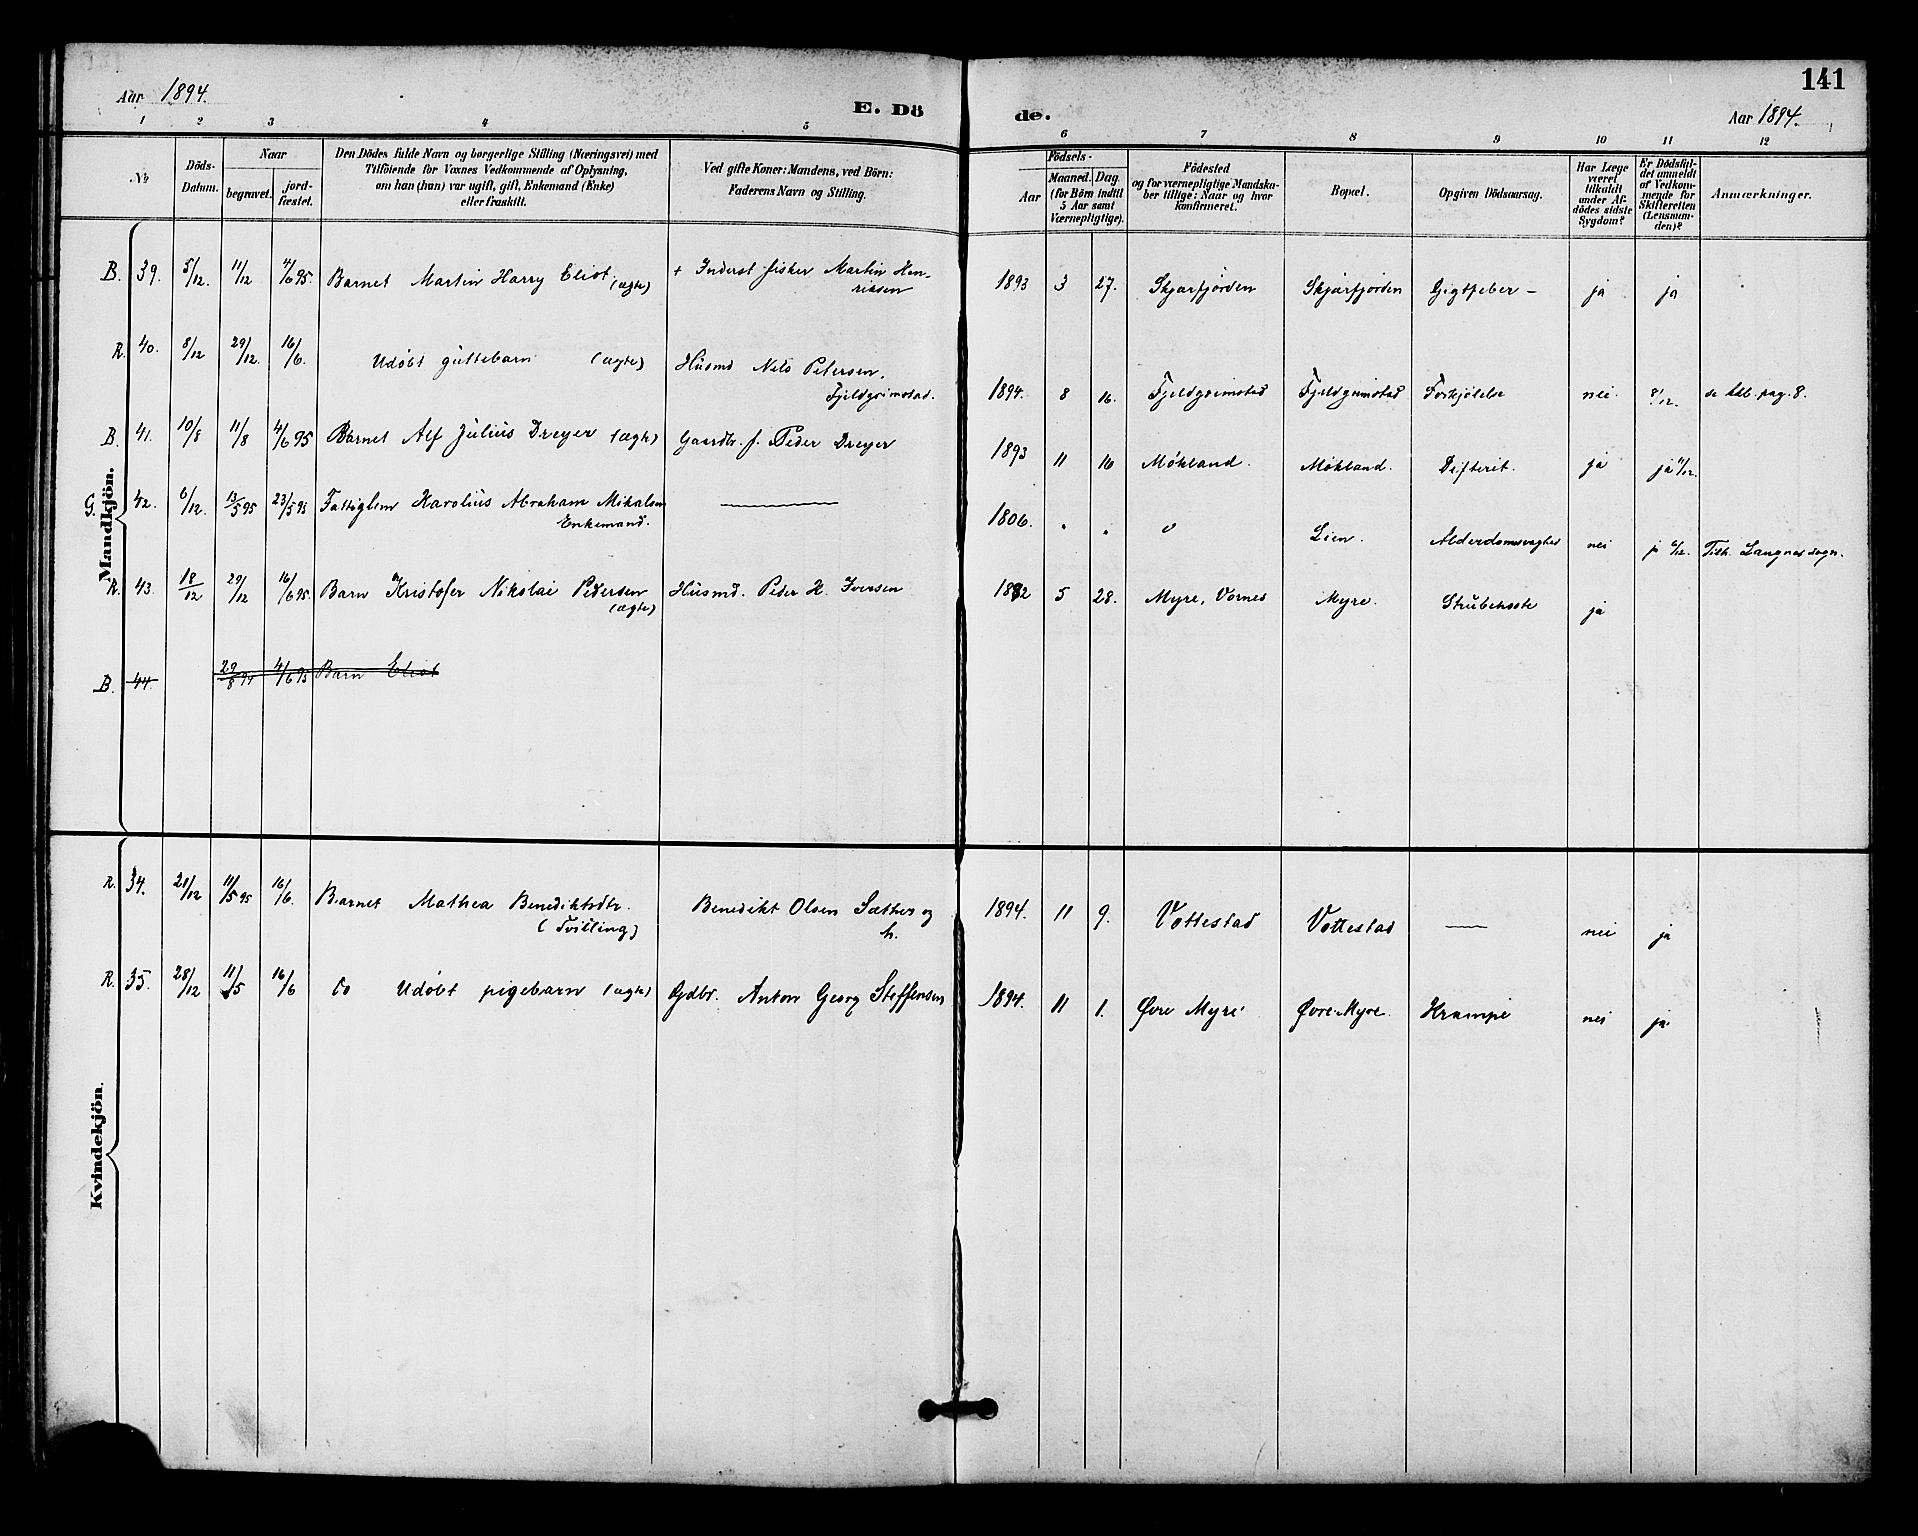 141
Aar 1894.
E. Dö
de.
Aar 1894.
1 2 3 4 5 6 7 8 9 10 11 12
No
Döds-
Datum.
Naar
begravet.
jord-
fæstet.
Den Dödes fulde Navn og borgerlige Stilling (Næringsvei) med
Tilföiende for Voxnes Vedkommende af Oplysning,
om han (hun) var ugift, gift, Enkemand (Enke)
eller fraskilt.
Ved gifte Koner: Mandens, ved Börn:
Faderens Navn og Stilling.
Födsels-
Aar
Maaned. Dag.
(for Börn indtil
5 Aar samt
Værnepligtige).
Födested
og for værnepligtige Mandska-
ber tillige: Naar og hvor
konfirmeret.
Bopæl.
Opgiven Dödsaarsag.
Har Læge
været
tilkaldt
under Af-
dödes sidste
Sygdom?
Er Dödsfal-
det anmeldt
af Vedkom-
mende for
Skifteretten
(Lensman-
den)?
Anmærkninger.
Mandkjön.
B. 39. 5/12. 11/12 4/6 95. Barnet Martin Harry Eliot (ægte) + Inderst fisker Martin Hen-
riksen
1893 3 27. Skjærfjorden Skjærfjorden Gigtfeber – ja ja
R. 40. 8/12 29/12. 16/6. Udøbt guttebarn (ægte) Husmd Nils Petersen,
Fjeldgrimstad.
1894. 8 16. Fjeldgrimstad Fjeldgrimstad Forkjølelse nei. 8/12. pag. 8.
B. 41. 10/8 11/8 4/6 95 Barnet Alf Julius Dreyer (ægte) Gaardbr. f. Peder Dreyer
1893 11 10 Møkland. Møkland. Difterit. ja ja
G. 42. 6/12. 13/5 95 23/5 95 Fattiglem Karolius Abraham Mikalsen
Enkemand.
1806. Lien. Alderdomssvaghed nei ja Tilh. Langnes sogn.
R. 43. 18/12 29/12 16/6 95. Barn Kristofer Nikolai Pedersen
(ægte)
Husmd. Peder H. Iversen
1892 5 28. Myre, Vornes Myre. Strubehoste ja
B. 44. 29/8 94 4/6 95 Barn Eliot
Kvindekjön.
R. 34. 21/12 11/5 95 16/6. Barnet Mathea Benediktsdtr.
(Tvilling)
Benedikt Olsen Sæther og
h.
1894. 11 9. Vottestad Vottestad — nei ja
R. 35. 28/12 11/5 16/6 Do Udøbt pigebarn (ægte) Gdbr. Anton Georg Steffensen
1894. 11 1. Øvre Myre Øvre Myre Krampe nei ja